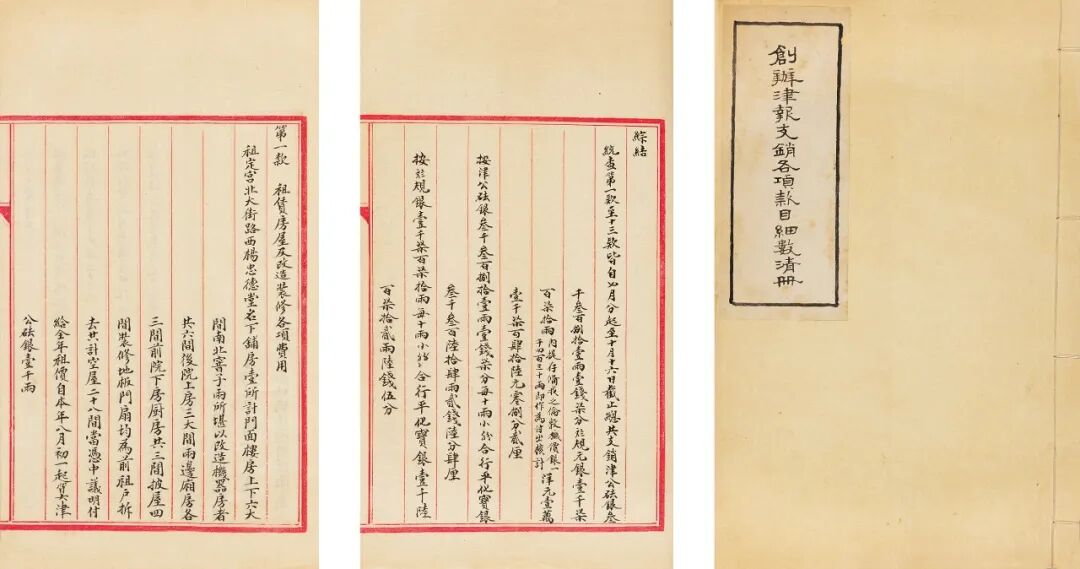 創辦津報支銷各項款目細數清冊
綜結
統查第一款至十三款皆自四月分起至十月十六日截止總共支銷津公砝銀叁
千叁百捌拾壹兩壹錢柒分於規元銀壹千柒
百柒拾兩
內提存備我之倫敦機價銀一
千四百三十兩即作為付出核計
洋元壹萬
壹千柒百肆拾陸元零捌分貳厘
按津公砝銀叁千叁百捌拾壹兩壹錢柒分每十兩小合行平化寶銀
叁千叁百陸拾肆兩貳錢陸分肆厘
按於規銀壹千柒百柒拾兩每十兩小合行平化寶銀壹千陸
百柒拾貳兩陸錢伍分
第一款 租賃房屋及改造裝修各項費用
租定宮北大街路西楊忠德堂名下舖房壹所計門面樓房上下六大
間南北窨子兩所堪以改造機器房者
共六間後院上房三大間兩邊廂房各
三間前院下房厨房共三間披屋四
間裝修地板門扇均為前租戶拆
去共計空屋二十八間當憑中議明付
給全年租價自本年八月初一起津
公砝銀壹千兩